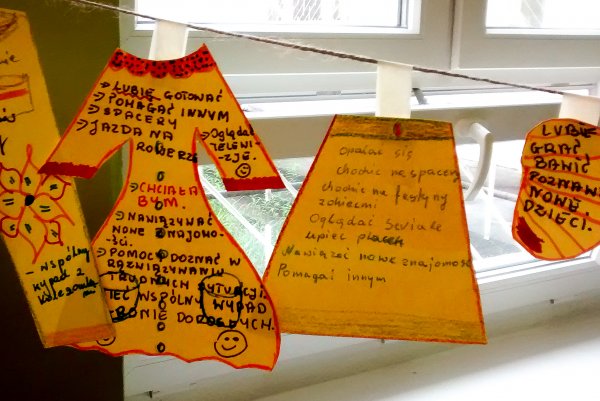 - WSPÓLNY
→ LUBIĘ GOTOWAĆ
→ POMAGAĆ INNYM
→ SPACERY
→ JAZDA NA
ROWERZE
→ Oglądać
TELEWI-
ZJĘ.
→ CHCIAŁA
BYM.
→ NAWIĄZYWAĆ
NOWE ZNAJOMO-
ŚCI.
→ POMOC DOZNAĆ W
ROZWIĄZYWANIU
TRUDNYCH SYTUACJI.
WSPÓLNY WYPAD
opalać się
chodzić na spacery
chodzić na festyny
Oglądać seriale
upiec placek
Nawiązać nowe znajomości
Pomagać innym
LUBIĘ
GRAĆ
BAWIĆ
POZNAWAĆ
NOWE
DZIECI.